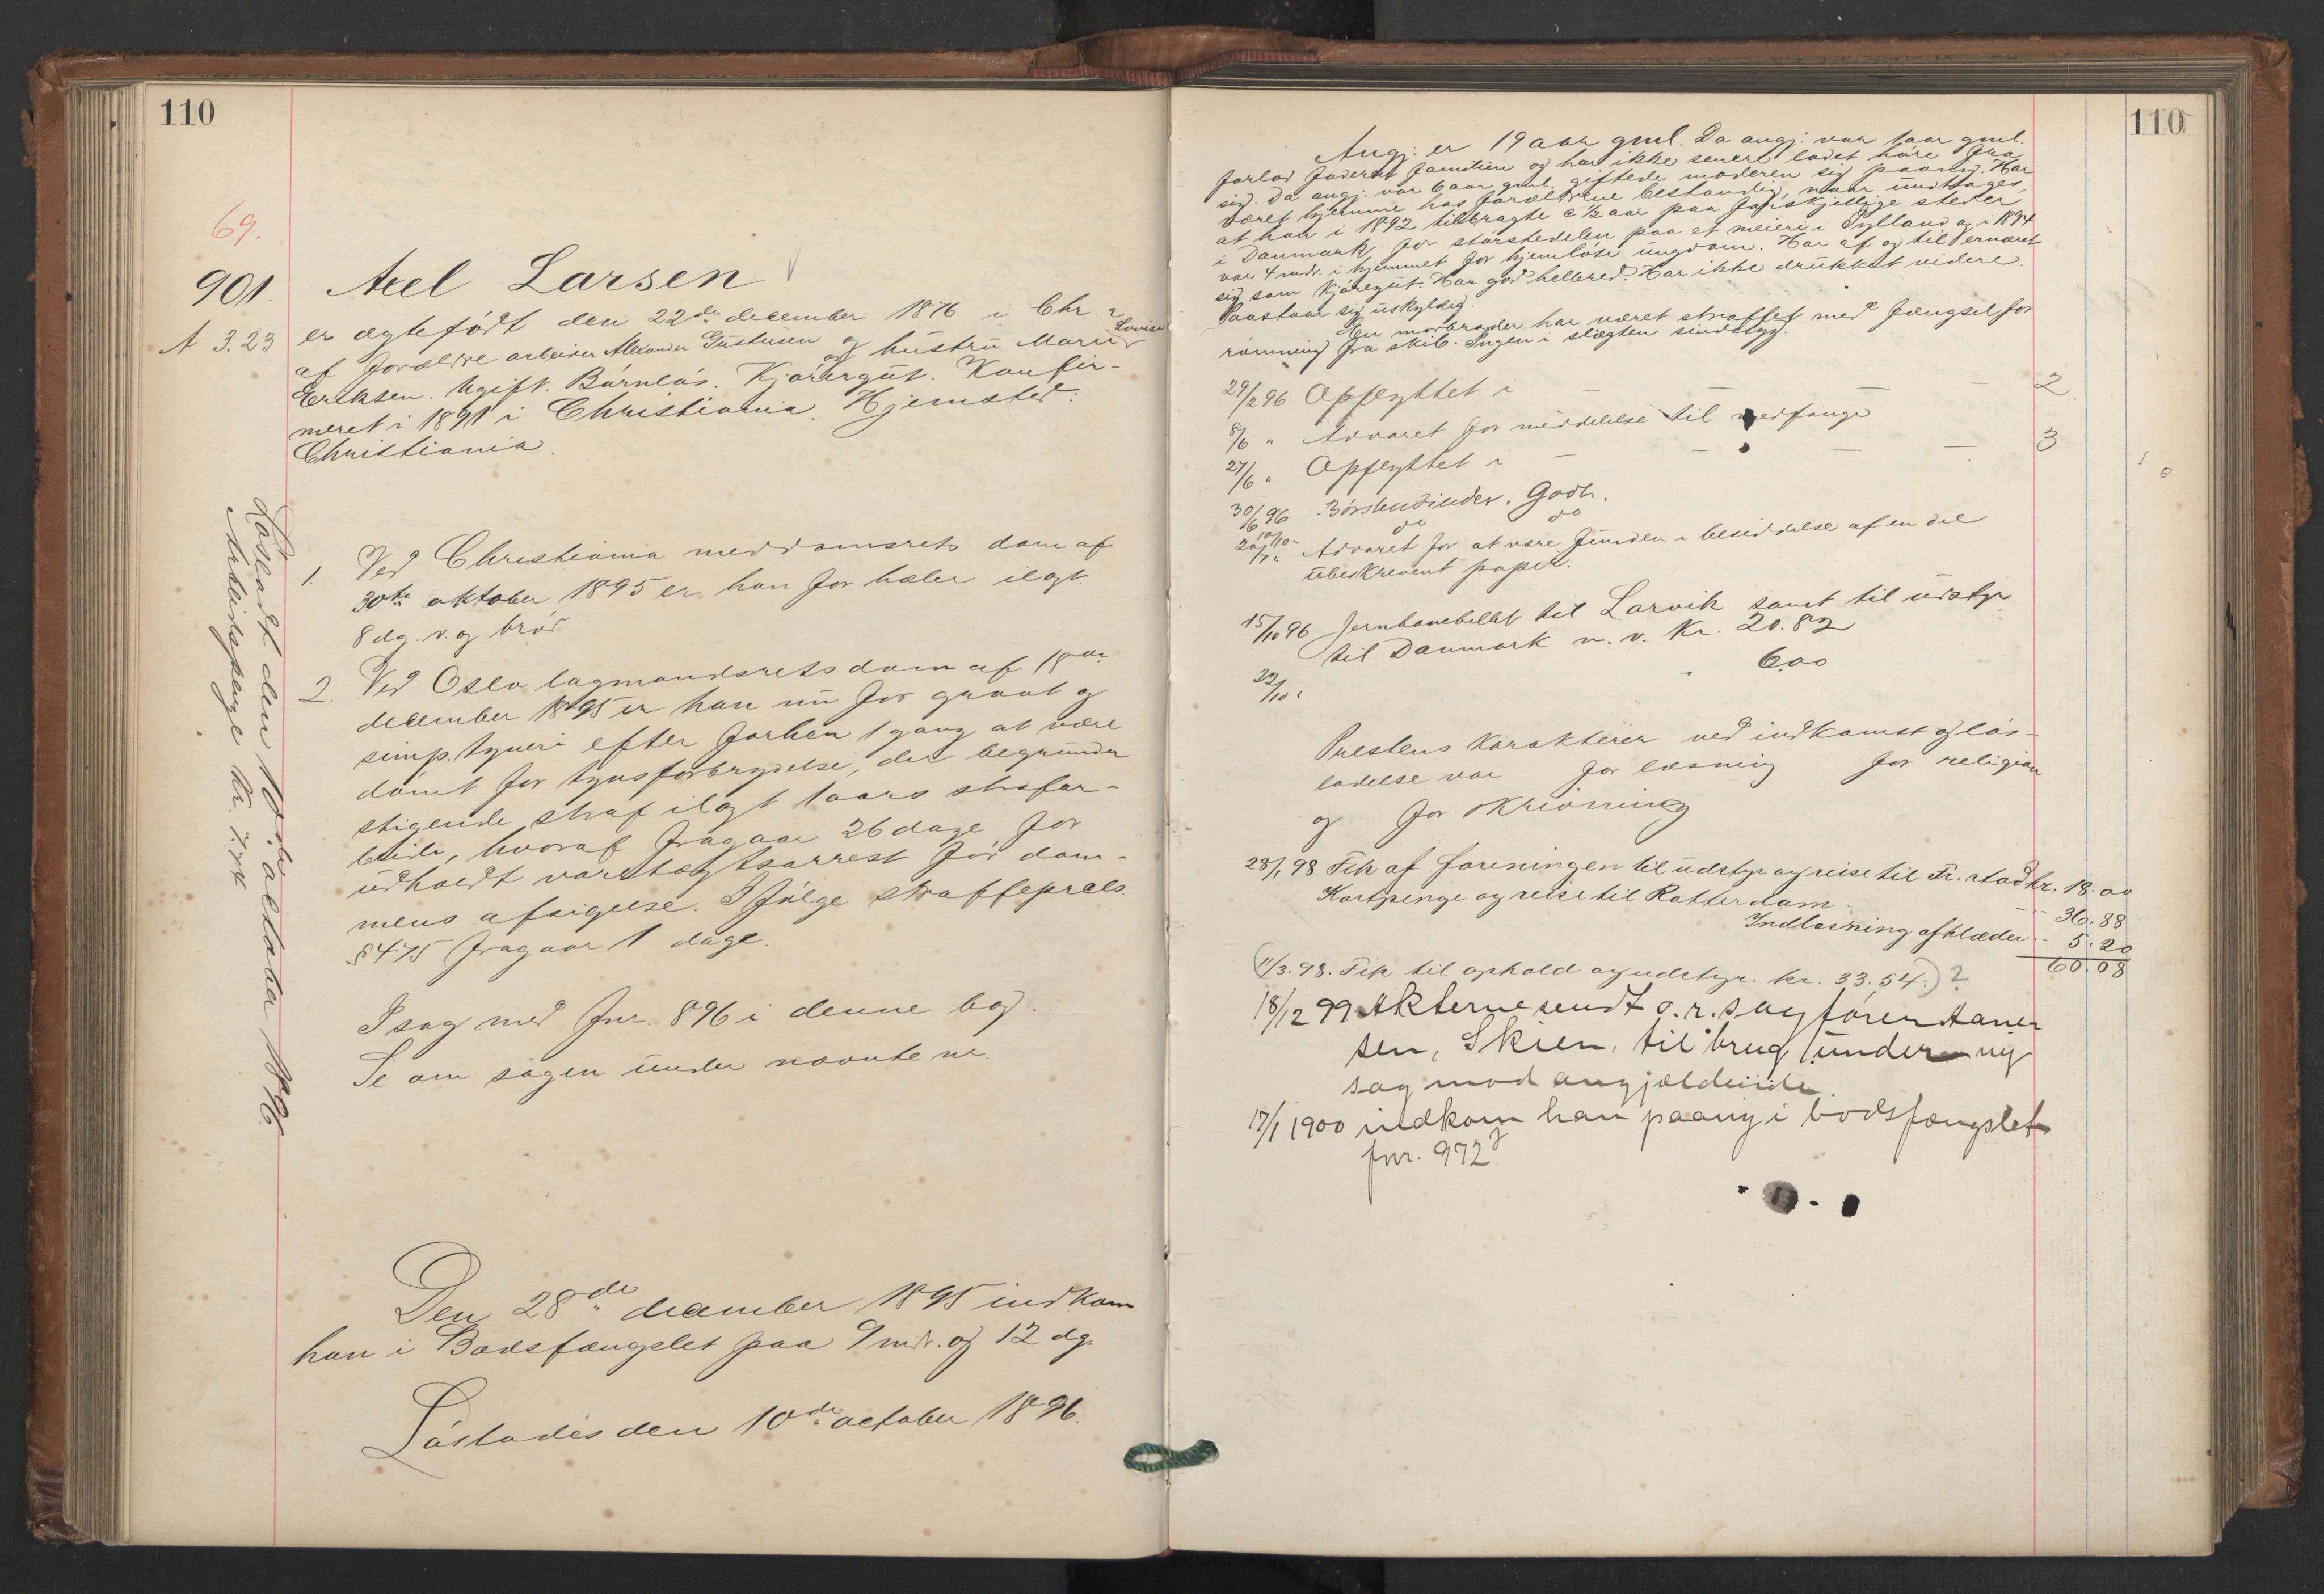 110
69.
901. Axel Larsen
A 3.23 er ægtefødt den 22de december 1876 i Chr.a
af forældre arbeider Alexander Gustusen og hustru Marie Lovise
Eriksen. Ugift. Barnløs. Kjøregut. Konfir-
meret i 1891 i Christiania. Hjemsted:
Christiania.
Løsladt den 10de october 1896.
Arbeidspenge kr. 7.74
1. Ved Christiania meddomsrets dom af
30te oktober 1895 er han for hæleri ilagt
8 dg. v. og brød.
2. Ved Oslo lagmandsrets dom af 18de
december 1895 er han nu for gravt og
simp. tyveri efter forhen 1 gang at være
dømt for tyvsforbrydelse, der begrunder
stigende straf ilagt 1 aars strafar-
beide, hvoraf fragaar 26 dage for
udholdt varetægtsarrest før dom-
mens afsigelse. Ifølge straffeprcls.
§ 475 fragaar 1 dage.
I sag med fnr. 896 i denne bog.
Se om sagen under nævnte nr.
Den 28de december 1895 indkom
han i Bodsfængslet paa 9 mdr. og 12 dg.
Løslades den 10de october 1896.
110
Angj. er 19 aar gml. Da angj. var 1 aar gml.
forlod faderen familien og har ikke senere ladet høre fra
sig. Da angj. var 6 aar gml. giftede moderen sig paany. Har
været hjemme hos forældrene bestandig, naar undtages,
at han i 1892 tilbragte c ½ aar paa forskjellige steder
i Danmark, for størstedelen paa et meieri i Jylland og i 1894
var 4 mdr. i hjemmet for hjemløse ungdom. Har af og til ernæret
sig som kjøregut. Har god helbred. Har ikke drukket videre.
Paastaar sig uskyldig.
En morbroder har været straffet med fængsel for
rømning fra skib. Ingen i slægten sindssyg.
29/2 96 Opflyttet i — — — — 2
8/6 " Advaret for meddelelse til medfange
27/6 " Opflyttet i — — — — 3
30/6 96 Børstenbinder. Godt.
10/10 " do do
20/7 " Advaret for at være funden i besiddelse af en del
ubeskrevent papir.
15/10 96 Jernbanebillet til Larvik samt til udstyr
til Danmark m. v. Kr. 20.82
22/10 " " 6.00
Prestens karakterer ved indkomst og løs-
ladelse var for læsning for religion
og for skrivning
28/1 98 Fik af foreningen til udstyr og reise til Fr.stad kr. 18.00
Kostpenge og reise til Rotterdam — 36.88
Indløsning af klæder — 5.20
60.08
(11/3.98. Fik til ophold og udstyr. kr. 33.54.) ?
18/12 99 Akterne sendt o.r.sagfører Aanen
sen, Skien, til brug under ny
sag mod angjældende.
17/1 1900 indkom han paany i bodsfængslet
fnr. 972